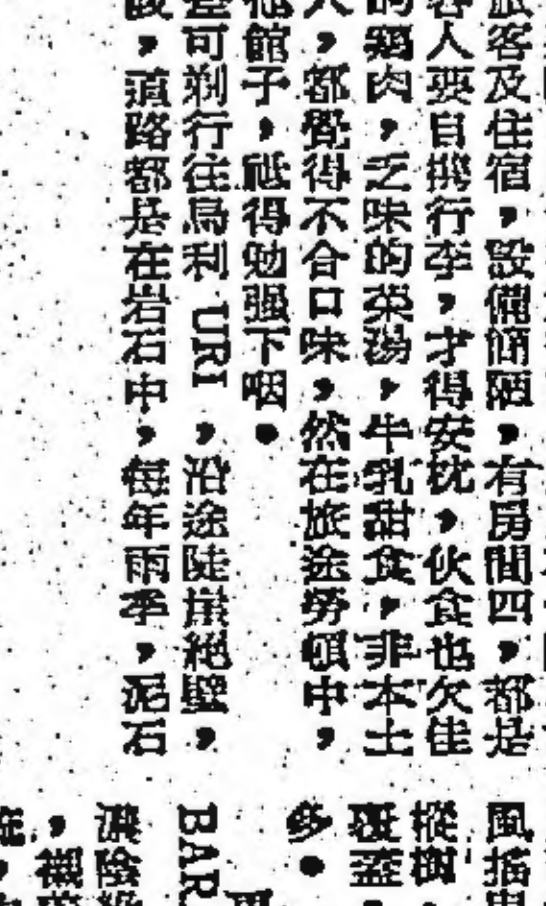 旅客及住宿，設備簡陋，有房間四，都是
客人要自携行李，才得安枕，伙食也欠佳
的鷄肉，乏味的菜湯，牛乳甜食，非本土
人，都覺得不合口味，然在旅途勞頓中，
他館子，祗得勉强下咽。
可剃行往烏利 URI ，沿途陡崖絕壁，
，道路都是在岩石中，每年雨季，泥石
風搖
樅樹
覆蓋，
多。
BAR
濃陰
，襯